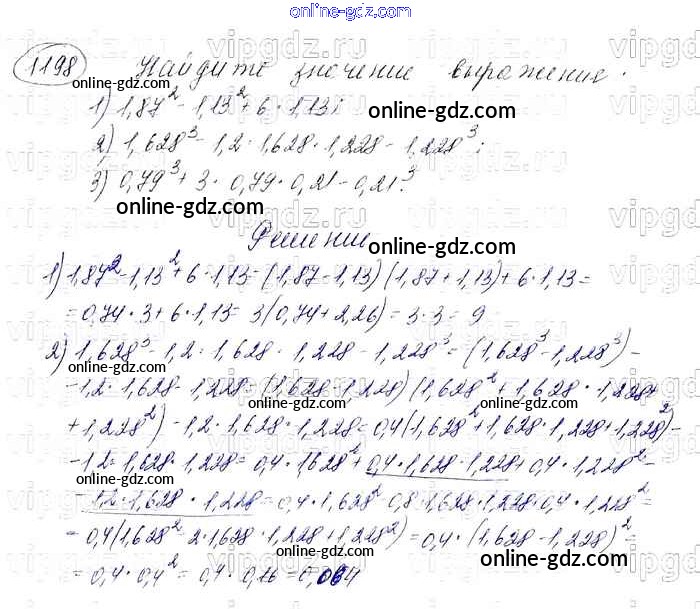 online-gdz.com
1198 Найдите значение выражения.
1) 1,87² - 1,13² + 6 · 1,13;
2) 1,628³ - 1,2 · 1,628 · 1,228 - 1,228³;
3) 0,79³ + 3 · 0,79 · 0,21 - 0,21³.
Решение
1) 1,87² - 1,13² + 6 · 1,13 = (1,87 - 1,13) (1,87 + 1,13) + 6 · 1,13 =
= 0,74 · 3 + 6 · 1,13 = 3(0,74 + 2,26) = 3 · 3 = 9
2) 1,628³ - 1,2 · 1,628 · 1,228 - 1,228³ = (1,628³ - 1,228³) -
- 1,2 · 1,628 · 1,228 = (1,628 - 1,228) (1,628² + 1,628 · 1,228 +
+ 1,228²) - 1,2 · 1,628 · 1,228 = 0,4(1,628² + 1,628 · 1,228 + 1,228²) -
- 1,2 · 1,628 · 1,228 = 0,4 · 1628² + 0,4 · 1,628 · 1,228 + 0,4 · 1,228² -
- 1,2 · 1,628 · 1,228 = 0,4 · 1,628² - 0,8 · 1,628 · 1,228 · 0,4 · 1,228² =
= 0,4(1,628² - 2 · 1,628 · 1,228 + 1,228²) = 0,4 · (1,628 - 1,228)² =
= 0,4 · 0,4² = 0,4 · 0,16 = 0,064